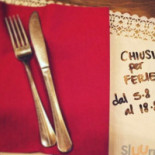 CHIUSI
per
FERIE
dal 5.8
al 18.